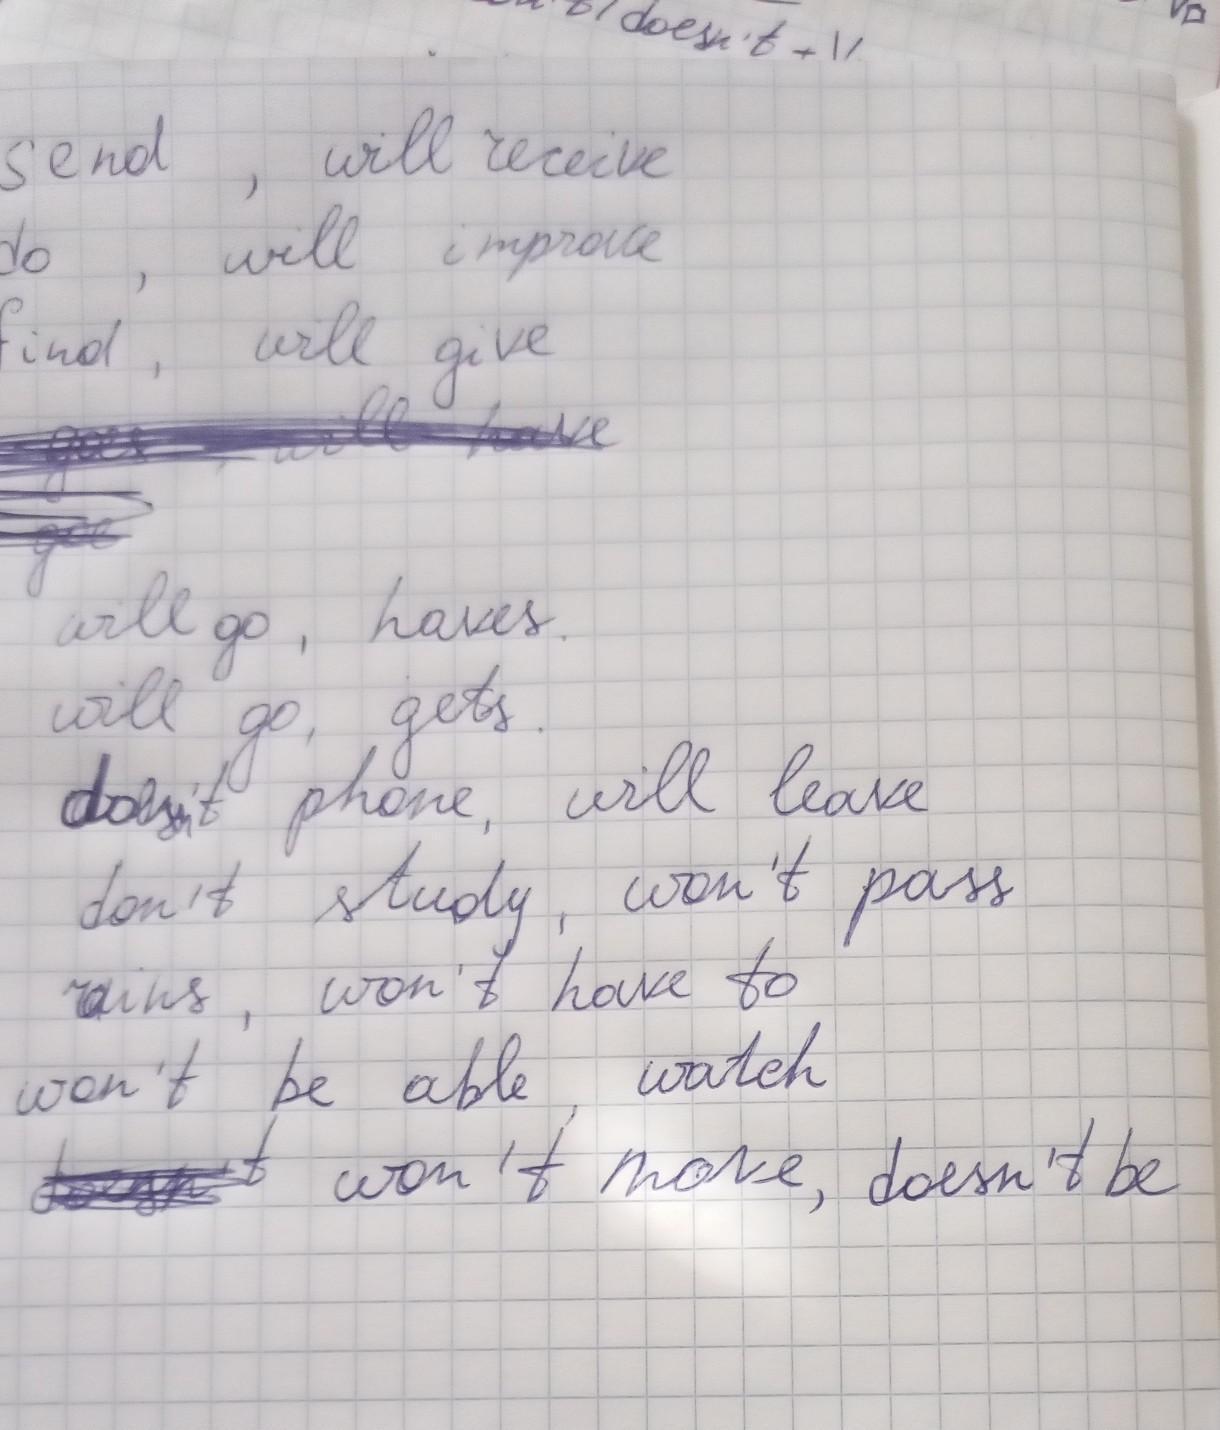 doesn't + V
send, will receive
do, will improve
find, will give
goes, will have
goe
will go, haves.
will go, gets.
doesn't phone, will leave
don't study, won't pass
rains, won't have to
won't be able, watch
doesn't won't move, doesn't be